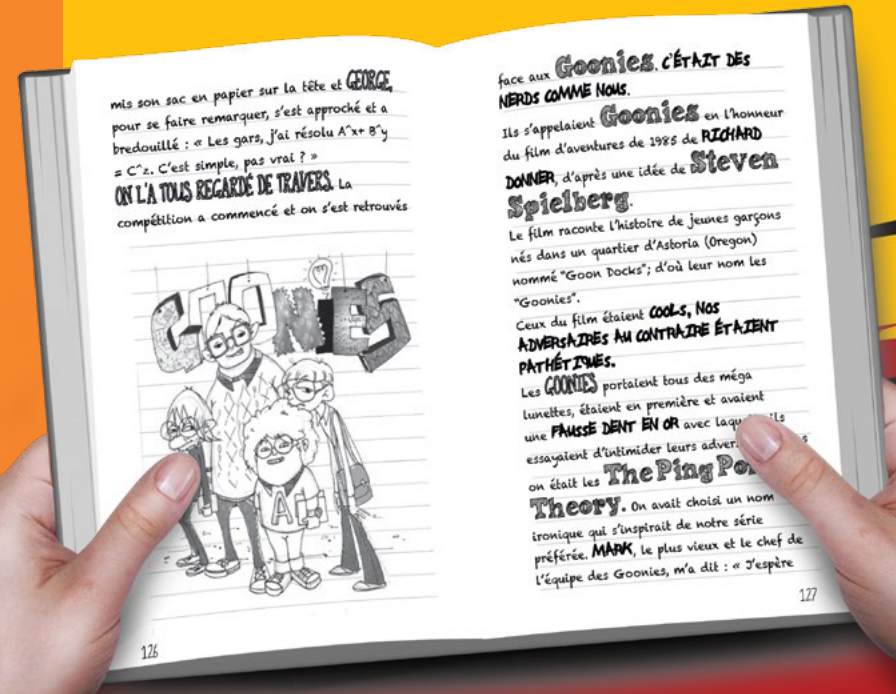 mis son sac en papier sur la tête et GEORGE,
pour se faire remarquer, s'est approché et a
bredouillé : « Les gars, j'ai résolu A^x+ B^y
= C^z. C'est simple, pas vrai ? »
ON L'A TOUS REGARDÉ DE TRAVERS. La
compétition a commencé et on s'est retrouvés
GOONIES
A
126
face aux Goonies. C'ÉTAIT DES
NERDS COMME NOUS.
Ils s'appelaient Goonies en l'honneur
du film d'aventures de 1985 de RICHARD
DONNER, d'après une idée de Steven
Spielberg.
Le film raconte l'histoire de jeunes garçons
nés dans un quartier d'Astoria (Oregon)
nommé "Goon Docks"; d'où leur nom les
"Goonies".
Ceux du film étaient COOLS, NOS
ADVERSAIRES AU CONTRAIRE ÉTAIENT
PATHÉTIQUES.
Les GOONIES portaient tous des méga
lunettes, étaient en première et avaient
une FAUSSE DENT EN OR avec
essayaient d'intimider leurs
on était les The Ping
Theory. On avait choisi un nom
ironique qui s'inspirait de notre série
préférée. MARK, le plus vieux et le chef de
l'équipe des Goonies, m'a dit : « J'espère
127